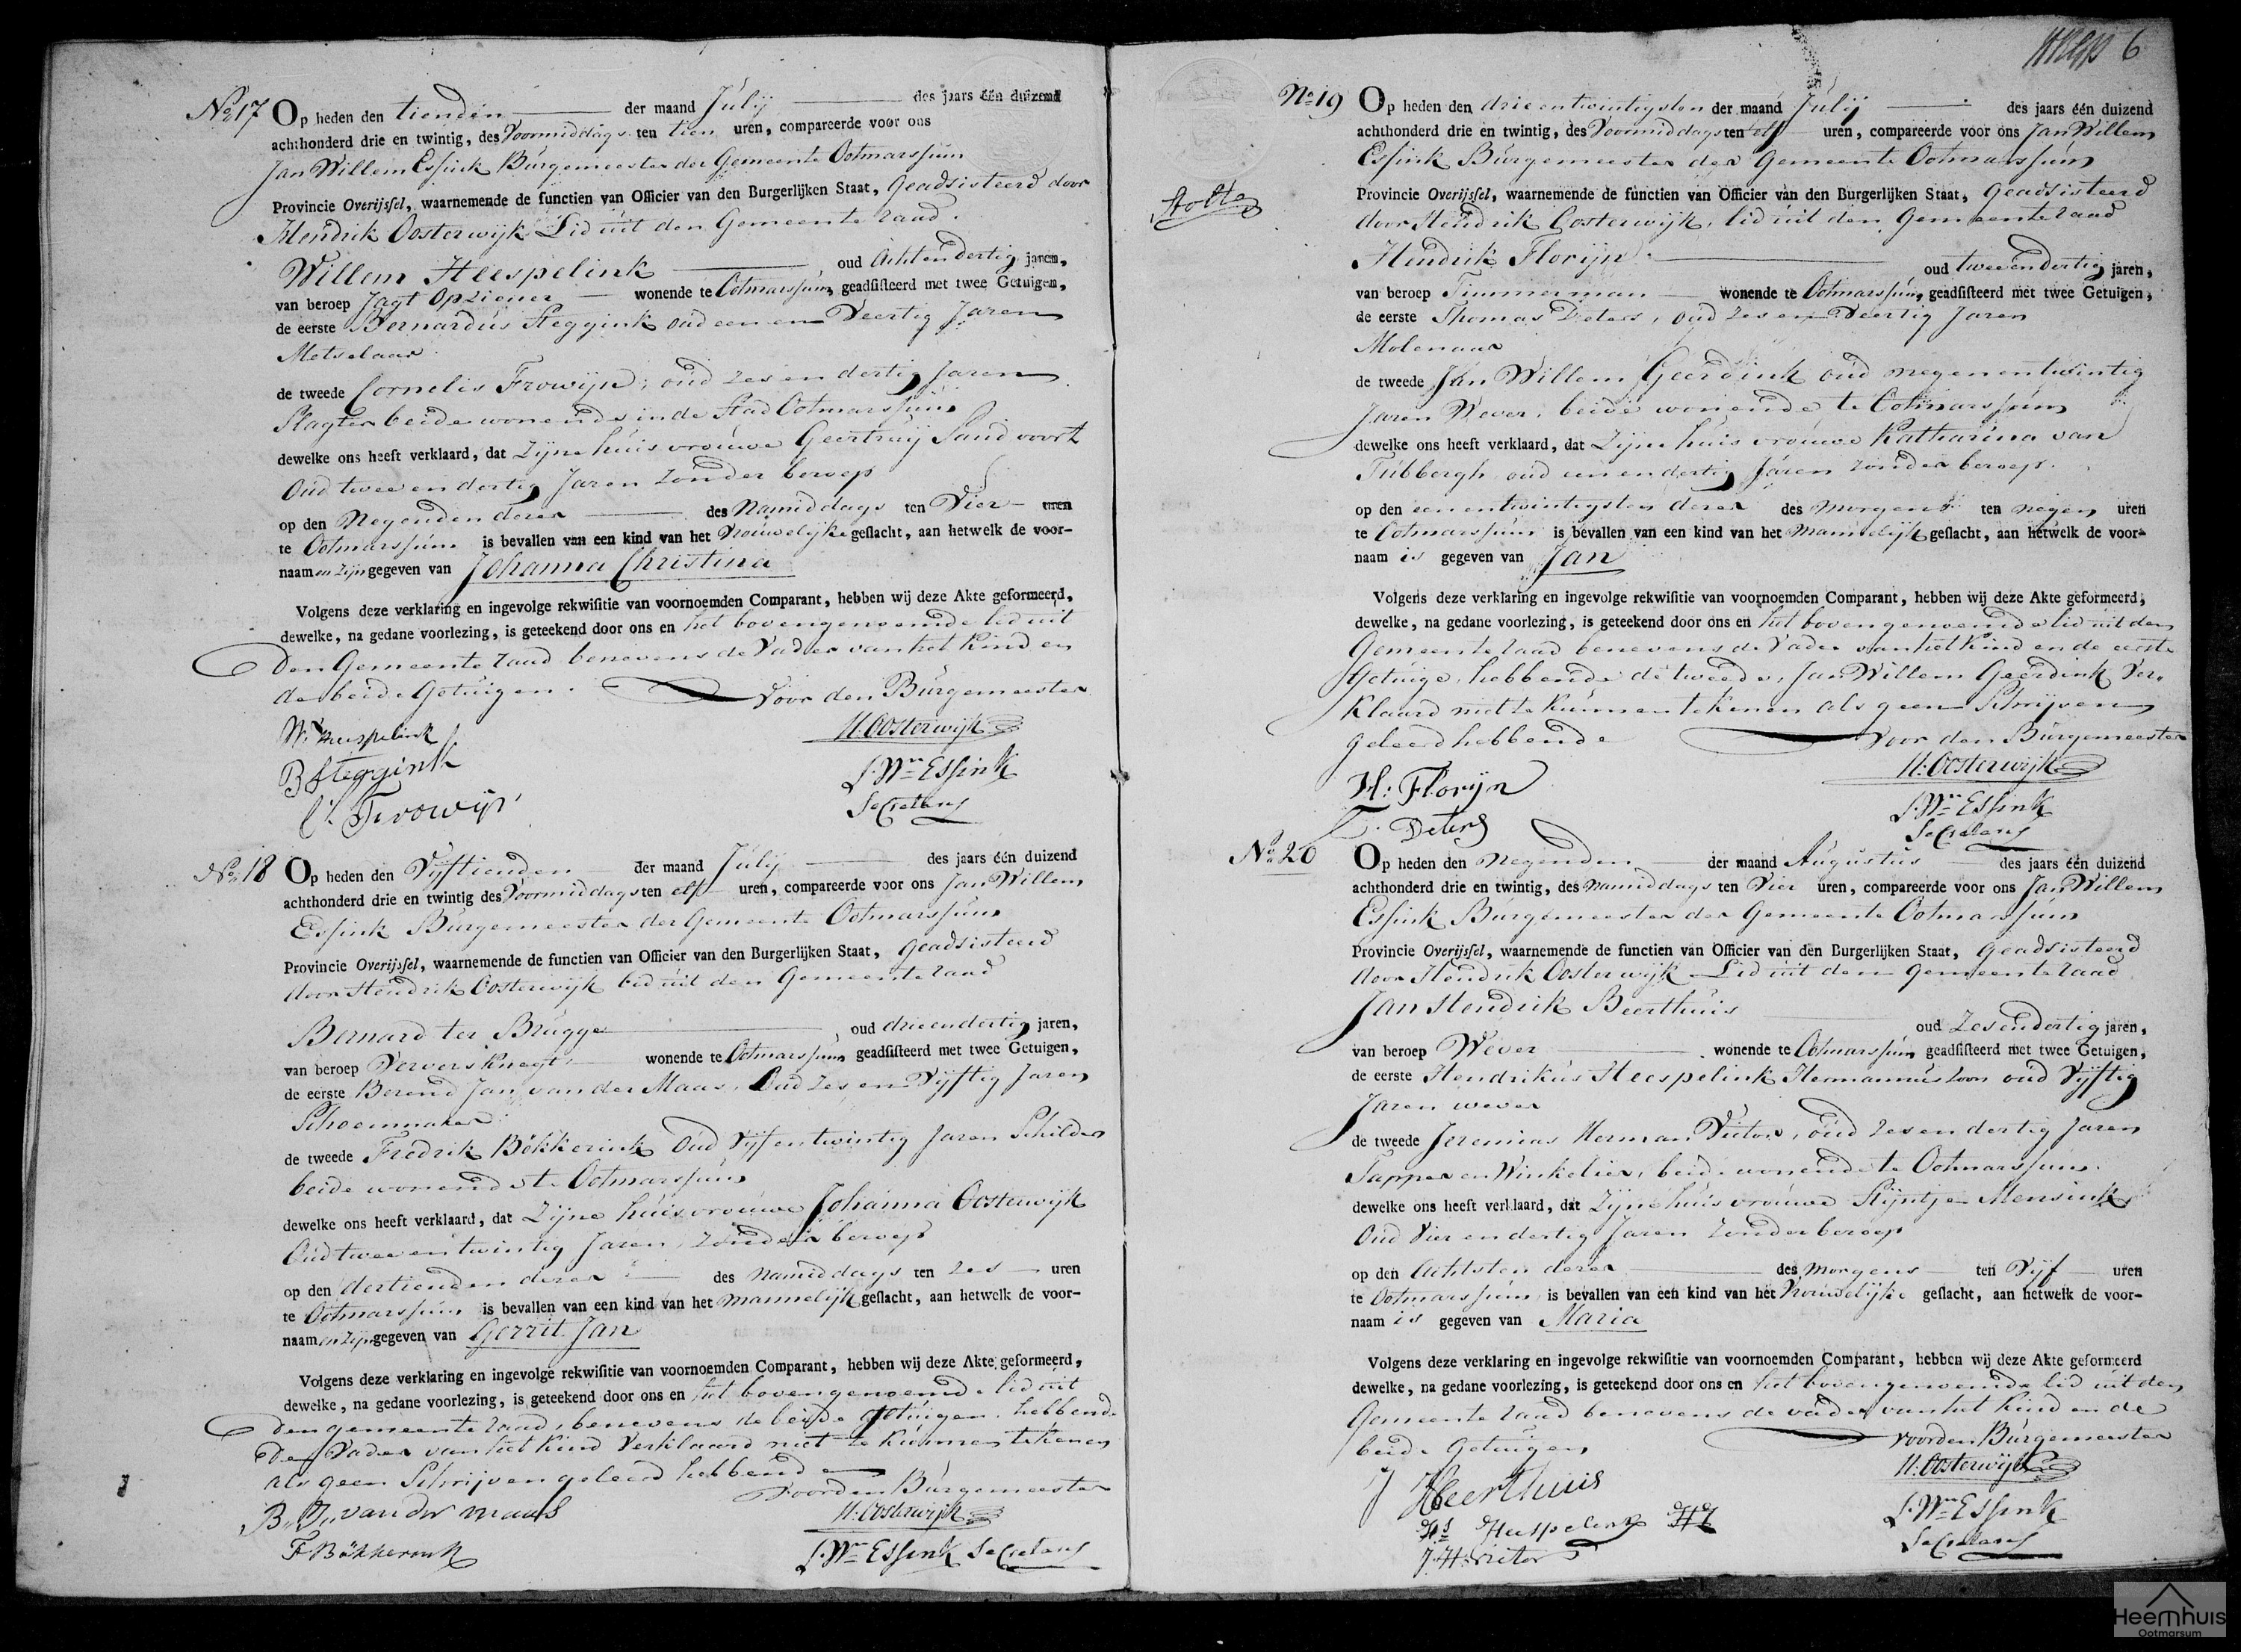 No 17 Op heden den tienden der maand Julij des jaars één duizend
achthonderd drie en twintig, des Voormiddags ten tien uren, compareerde voor ons
Jan Willem Essink Burgemeester der Gemeente Ootmarssum
Provincie Overijssel, waarnemende de functien van Officier van den Burgerlijken Staat, Geadsisteerd door
Hendrik Oosterwijk Lid uit den Gemeente raad.
Willem Heespelink oud Achtendertig jaren,
van beroep Jagt Opziener wonende te Ootmarssum geadsisteerd met twee Getuigen,
de eerste Bernardus Steggink oud een en Veertig Jaren
Metselaar
de tweede Cornelis Frowijn, oud zes en dertig Jaren
Slagter beide wonende in de Stad Ootmarssum
dewelke ons heeft verklaard, dat Zijne huisvrouwe Geertruij Sandvoort
Oud twee en dertig Jaren Zonder beroep
op den Negenden dezer des Namiddags ten Vier uren
te Ootmarssum is bevallen van een kind van het Vrouwelijke geslacht, aan hetwelk de voor-
naam en zijn gegeven van Johanna Christina
Volgens deze verklaring en ingevolge rekwisitie van voornoemden Comparant, hebben wij deze Akte geformeerd,
dewelke, na gedane voorlezing, is geteekend door ons en het bovengenoemde lid uit
den Gemeente raad benevens de Vader van het Kind en
de beide Getuigen. Voor den Burgemeester
W. Heespelink H: Oosterwijk
B Steggink J. Wm Essink
C. Frowijn Secretaris
No 18 Op heden den Vijftienden der maand Julij des jaars één duizend
achthonderd drie en twintig des Voormiddags ten elf uren, compareerde voor ons Jan Willem
Essink Burgemeester der Gemeente Ootmarssum
Provincie Overijssel, waarnemende de functien van Officier van den Burgerlijken Staat, Geadsisteerd
door Hendrik Oosterwijk lid uit den Gemeente raad
Bernard ter Brugge oud drieendertig jaren,
van beroep Ververs Knegt wonende te Ootmarssum geadsisteerd met twee Getuigen,
de eerste Berend Jan van der Maas, Oud Zes en Vijftig Jaren
Schoenmaker
de tweede Fredrik Bökkerink Oud Vijf en twintig Jaren Schilder
beide wonende te Ootmarssum
dewelke ons heeft verklaard, dat Zijne huisvrouwe Johanna Oosterwijk
Oud twee en twintig Jaren, Zonder beroep
op den dertienden dezer des Namiddags ten Zes uren
te Ootmarssum is bevallen van een kind van het Mannelijk geslacht, aan hetwelk de voor-
naam en zijn gegeven van Gerrit Jan
Volgens deze verklaring en ingevolge rekwisitie van voornoemden Comparant, hebben wij deze Akte geformeerd,
dewelke, na gedane voorlezing, is geteekend door ons en het bovengenoemde lid uit
den gemeente raad, benevens de beide getuigen, hebbende
de Vader van het Kind Verklaard niet te Kunnen tekenen
als geen Schrijven geleerd hebbende
Voor den Burgemeester
B. J. van der maas H: Oosterwijk
F Bökkerink J. Wm Essink Secretaris
6
No 19 Op heden den drieentwintigsten der maand Julij des jaars één duizend
achthonderd drie en twintig, des Voormiddags ten elf uren, compareerde voor ons Jan Willem
Essink Burgemeester der Gemeente Ootmarssum
Provincie Overijssel, waarnemende de functien van Officier van den Burgerlijken Staat, Geadsisteerd
door Hendrik Oosterwijk, lid uit den Gemeente raad
Hendrik Florijn oud tweeendertig jaren,
van beroep Timmerman wonende te Ootmarssum geadsisteerd met twee Getuigen,
de eerste Thomas Deters, oud Zes en Veertig Jaren
Molenaar
de tweede Jan Willem Geerdink oud negenentwintig
Jaren Wever, beide wonende te Ootmarssum
dewelke ons heeft verklaard, dat Zijne huisvrouwe Katharina van
Tubbergh oud een en dertig Jaren Zonder beroep.
op den eenentwintigsten dezer des morgens ten negen uren
te Ootmarssum is bevallen van een kind van het Mannelijk geslacht, aan hetwelk de voor-
naam is gegeven van Jan
Volgens deze verklaring en ingevolge rekwisitie van voornoemden Comparant, hebben wij deze Akte geformeerd,
dewelke, na gedane voorlezing, is geteekend door ons en het bovengenoemde lid uit den
Gemeente raad benevens de Vader van het Kind en de eerste
Getuige, hebbende de tweede, Jan Willem Geerdink Ver-
klaard niet te kunnen tekenen als geen Schrijven
geleerd hebbende Voor den Burgemeester
H: Oosterwijk
H: Florijn J. Wm Essink
T. Deters Secretaris
No 20 Op heden den Negenden der maand Augustus des jaars één duizend
achthonderd drie en twintig, des namiddags ten Vier uren, compareerde voor ons Jan Willem
Essink Burgemeester der Gemeente Ootmarssum
Provincie Overijssel, waarnemende de functien van Officier van den Burgerlijken Staat, Geadsisteerd
door Hendrik Oosterwijk Lid uit den gemeente raad
Jan Hendrik Beerthuis oud Zesendertig jaren,
van beroep Wever wonende te Ootmarssum geadsisteerd met twee Getuigen,
de eerste Hendrikus Heespelink Hermannus Zoon oud Vijftig
Jaren wever
de tweede Jeremias Herman Victor, oud zes en dertig Jaren
Tapper en Winkelier, beide wonende te Ootmarssum.
dewelke ons heeft verklaard, dat Zijne huisvrouwe Stijntje Mensink
Oud Vier en dertig Jaren Zonder beroep
op den Achtsten dezer des morgens ten Vijf uren
te Ootmarssum is bevallen van een kind van het Vrouwelijke geslacht, aan hetwelk de voor-
naam is gegeven van Maria
Volgens deze verklaring en ingevolge rekwisitie van voornoemden Comparant, hebben wij deze Akte geformeerd
dewelke, na gedane voorlezing, is geteekend door ons en het bovengenoemde lid uit den
Gemeente raad benevens de vader van het kind en de
beide Getuigen Voor den Burgemeester
H: Oosterwijk
J H Beerthuis
Hs Heespelink HZ J. Wm Essink
J. H. Victor Secretaris
Heemhuis
Ootmarsum